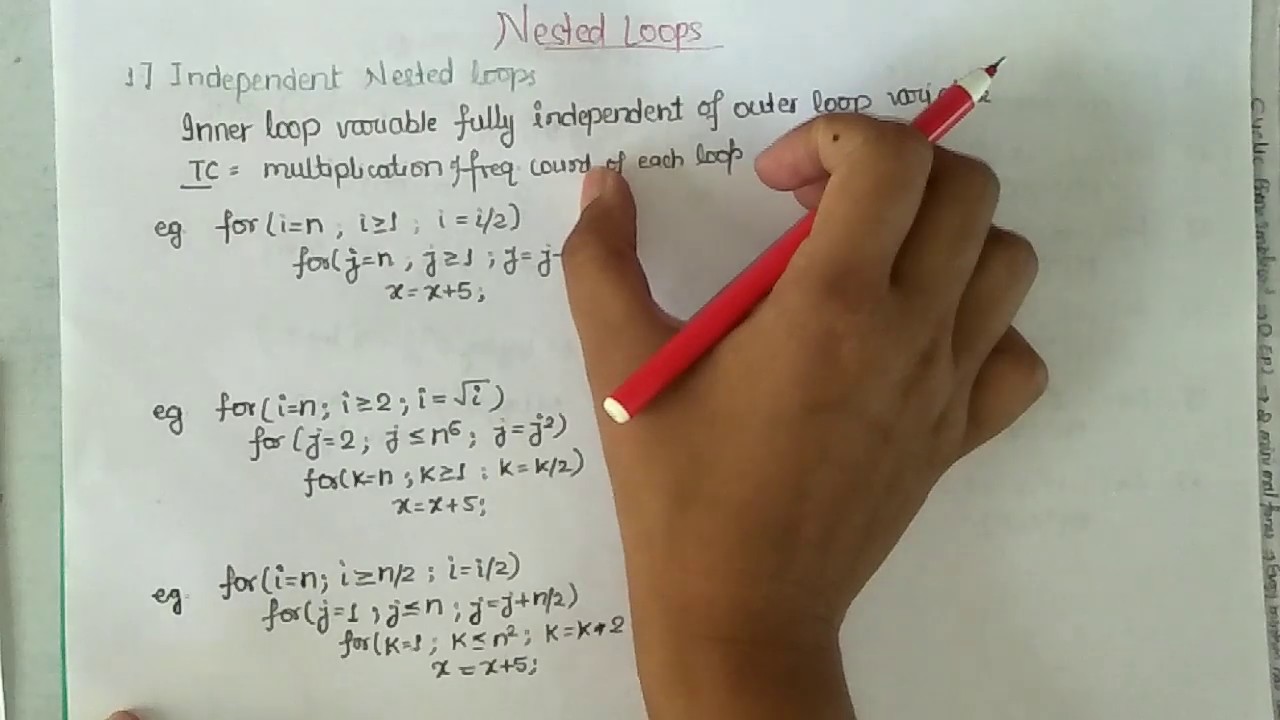 Nested Loops
1] Independent Nested loops
Inner loop variable fully independent of outer loop
TC = multiplication of freq count of each loop
eg for(i=n ; i≥1 ; i=i/2)
for(j=n , j≥1 ; j=j-
x=x+5;
eg for(i=n; i≥2; i=√i)
for(j=2; j≤n⁶; j=j²)
for(k=n ; k≥1 ; k=k/2)
x=x+5;
eg for(i=n; i≥n/2 ; i=i/2)
for(j=1 ; j≤n ; j=j+n/2)
for(k=1; k≤n²; k=k*2
x=x+5;